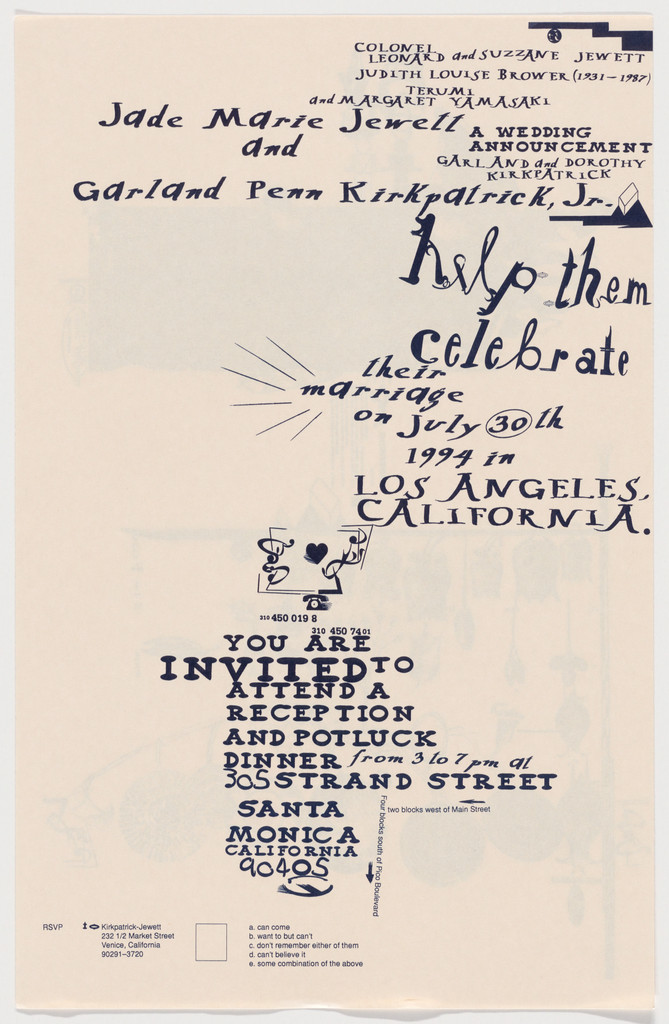 R
COLONEL
LEONARD and SUZZANE JEWETT
JUDITH LOUISE BROWER (1931-1987)
TERUMI
and MARGARET YAMASAKI
Jade Marie Jewett
A WEDDING
and
ANNOUNCEMENT
GARLAND and DOROTHY
KIRKPATRICK
Garland Penn Kirkpatrick, Jr.
help them
celebrate
their
marriage
on July 30th
1994 in
LOS ANGELES,
CALIFORNIA.
310 450 019 8
310 450 7401
YOU ARE
INVITED TO
ATTEND A
RECEPTION
AND POTLUCK
DINNER from 3 to 7 pm at
305 STRAND STREET
two blocks west of Main Street
Four blocks south of Pico Boulevard
SANTA
MONICA
CALIFORNIA
90405
RSVP
Kirkpatrick-Jewett
232 1/2 Market Street
Venice, California
90291-3720
a. can come
b. want to but can't
c. don't remember either of them
d. can't believe it
e. some combination of the above